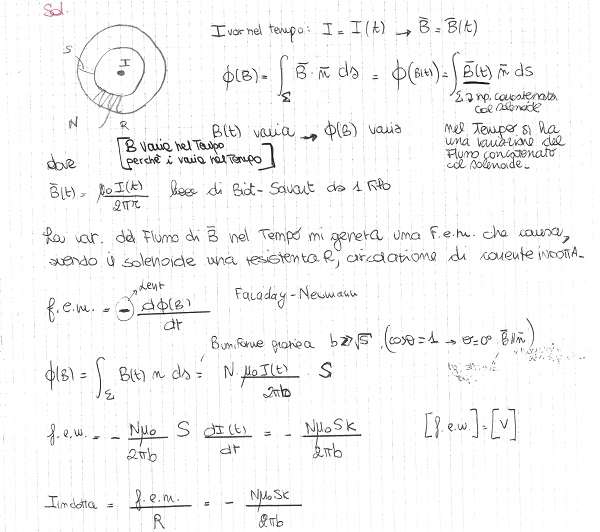 Sol.
I var nel tempo: I = I(t) → B̄ = B̄(t)
S
I
N
R
ϕ(B) = ∫_Σ B̄ · n̄ ds = ϕ(B(t)) = ∫ B̄(t) n̄ ds
Σ → sup. concatenata
col solenoide
B(t) varia → ϕ(B) varia
nel Tempo si ha
una variazione del
Flusso concatenato
col solenoide.
[B varia nel Tempo
perchè i varia nel Tempo]
dove
B̄(t) = μ₀ I(t) / 2πr legge di Biot-Savart da 1 filo
La var. del Flusso di B̄ nel Tempo mi genera una f.e.m. che causa,
avendo il solenoide una resistenza R, circolazione di corrente INDOTTA.
Lenz
f.e.m. = - dϕ(B) / dt Faraday-Neumann
B uniforme grazie a b≫√S (cosθ = 1 → θ = 0° B̄ ∥ n̄)
ϕ(B) = ∫_Σ B(t) n ds = N μ₀ I(t) / 2πb S
f.e.m. = - Nμ₀ / 2πb S dI(t) / dt = - Nμ₀Sk / 2πb [f.e.m.] = [V]
Iindotta = f.e.m. / R = - Nμ₀Sk / 2πb